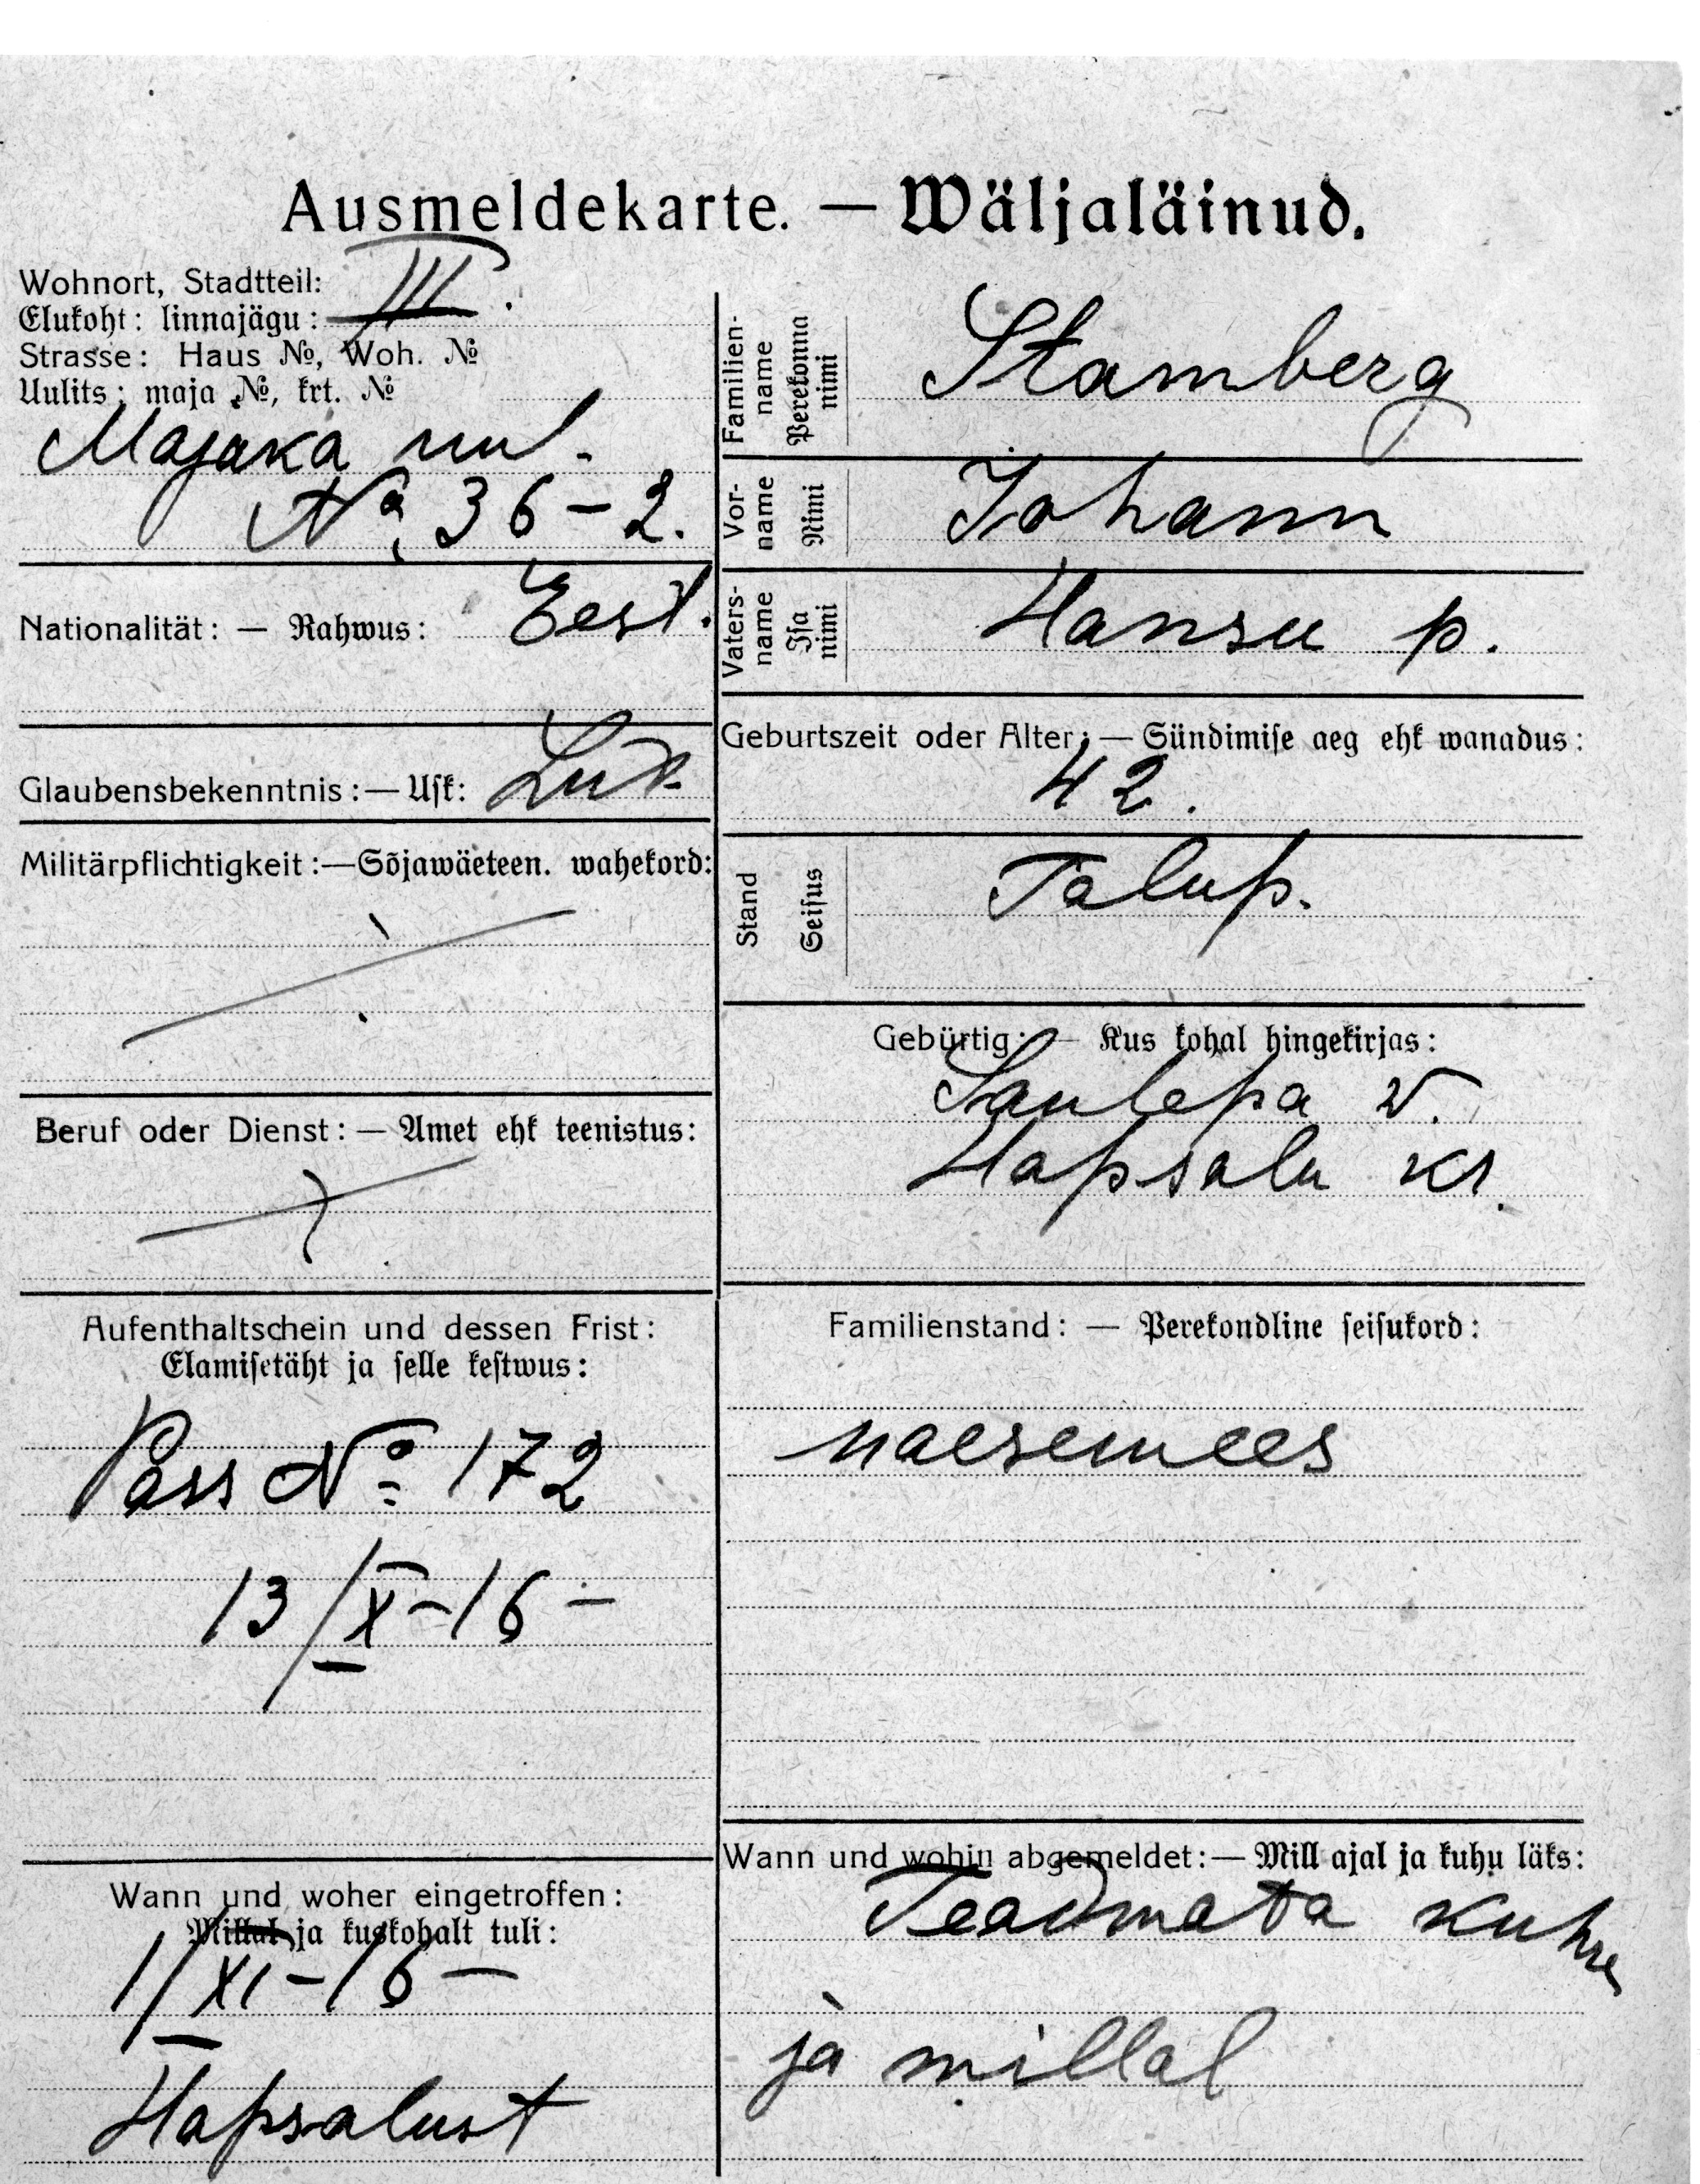 Ausmeldekarte. — Wäljaläinud.
Wohnort, Stadtteil:
Elukoht: linnajägu: III.
Strasse: Haus №, Woh. №
Uulits: maja №, krt. №
Majaka uul.
№ 36-2.
Nationalität: — Rahwus: Eest.
Glaubensbekenntnis: — Usk: Lut.
Militärpflichtigkeit: — Sõjawäeteen. wahekord:
Beruf oder Dienst: — Amet ehk teenistus:
Aufenthaltschein und dessen Frist:
Elamisetäht ja selle kestwus:
Pass № 172
13/X-16-
Wann und woher eingetroffen:
Millal ja kuskohalt tuli:
1/XI-16-
Hapsalust
Familien-
name
Perekonna
nimi
Stamberg
Vor-
name
Nimi
Johann
Vaters-
name
Isa
nimi
Hansu p.
Geburtszeit oder Alter: — Sündimise aeg ehk wanadus:
42.
Stand
Seisus
Talup.
Gebürtig: — Kus kohal hingekirjas:
Saulepa v.
Hapsalu kr.
Familienstand: — Perekondline seisukord:
naesemees
Wann und wohin abgemeldet: — Mill ajal ja kuhu läks:
Teadmata kuhu
ja millal